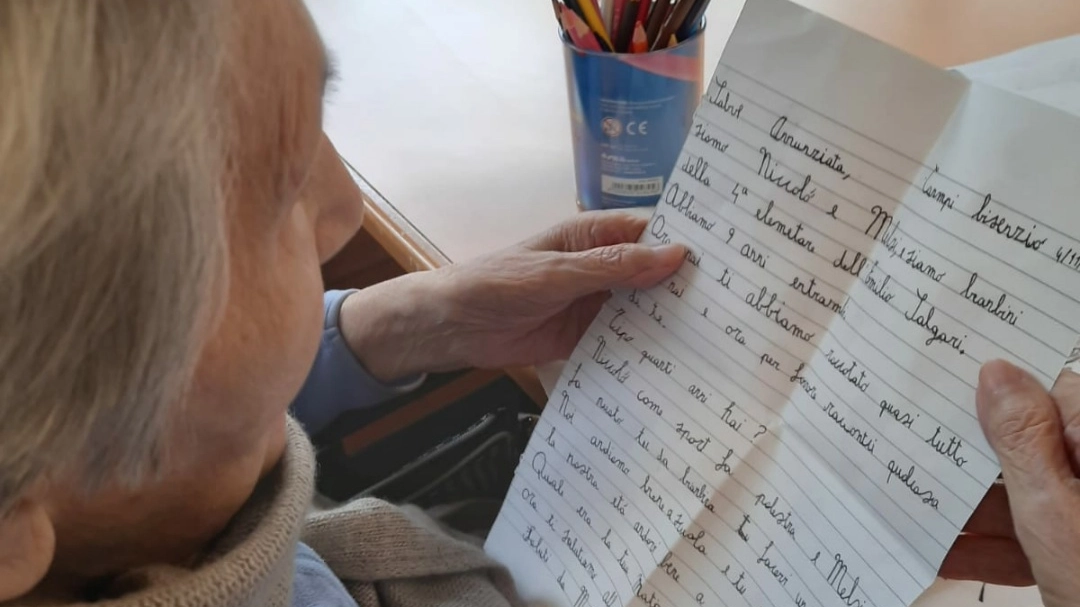 Campi bisenzio 4/11
Salve Annunziata,
siamo Niccolò e siamo bambini
della 4ª elemetare dell'Emilio Salgari.
Abbiamo 9 anni entrambi
Ora noi ti abbiamo raccotato quasi tutto
di noi e ora per favore racconti qualcosa
di te.
Tipo quanti anni hai?
Niccolò come sport fa palestra e
fa nuoto tu da bambina tu facevi
Noi andiamo bene a scuola e tu
la nostra età andavi bene a
Quale era la tua
ora ti salutiamo
Saluti da
CE